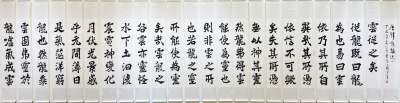 龍噓氣成雲
雲固弗靈於
龍也然龍乘
是氣茫洋窮
乎元間薄日
月伏光景感
震電神變化
水下土汩陵
谷雲亦靈怪
矣哉雲龍之
所能使為靈
也若龍之靈
則非雲之所
能使為靈也
然龍弗得雲
無以神其靈
矣失其所憑
依信不可歟
異哉其所憑
依乃其所自
為也易曰雲
從龍既曰龍
雲從之矣